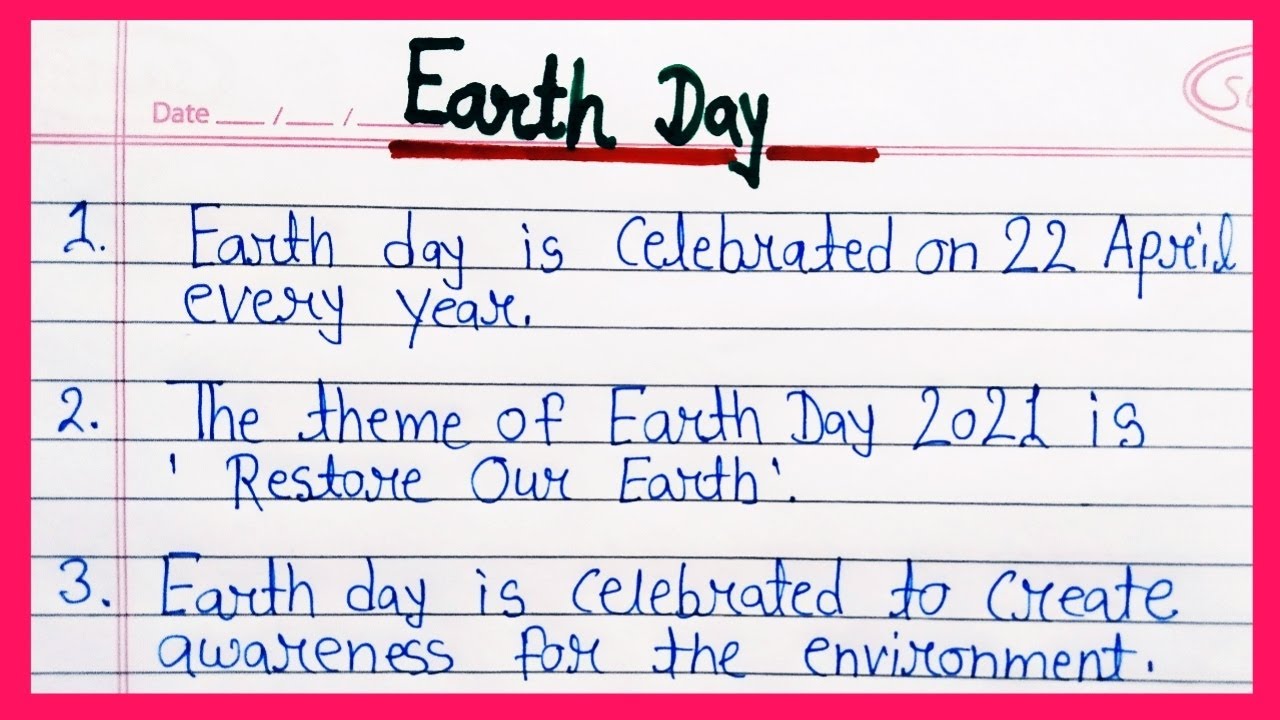 Earth Day
Date __ / __ / __
1. Earth day is celebrated on 22 April
every year.
2. The theme of Earth Day 2021 is
' Restore Our Earth'.
3. Earth day is celebrated to create
awareness for the environment.